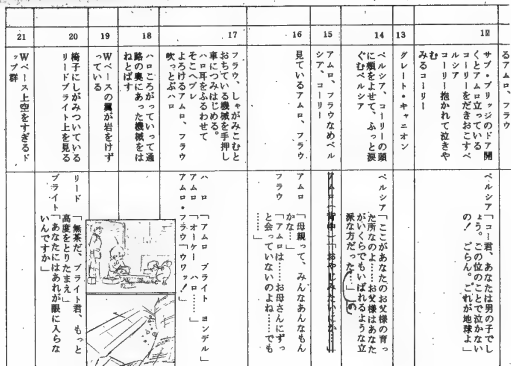 るアムロ、フラウ
12
サブ・ブリッジのドア開
くとアムロ立っている
コーリーをだきおこすペ
ルシア
コーリー抱かれて泣きや
む
みるコーリー
ペルシア「コーリー君、あなたは男の子でし
ょう。この位のことで泣かない
の！ごらん。これが地球よ」
13
グレート・キャニオン
14
ペルシア、コーリーの頭
に頬をよせて、ふっと涙
ぐむペルシア
ペルシア「ここがあなたのお父様の育っ
た所なのよ……お父様はあなた
がいくらでもいばれるような立
派な方だった……」
15
アムロ、フラウなめペル
シア、コーリー
アムロ（背中）「おやじみたいにか……」
16
見ているアムロ、フラウ
アムロ「母親って、みんなあんなもん
かな…」
フラウ「アムロは……お母さんにずっ
と会っていないのよね……でも
……」
17
フラウ、しゃがみこむと
おちている機械を手押し
車につみはじめる。
ハロ耳をふるわせて
そこへブレ
よろけるアムロ、フラウ
吹っとぶハロ
ハロ「アムロ ブライト ヨンデル」
アムロ「オーケー、ハロ……」
アムロ・フラウ「ウワッ！」
18
ハロころがっていって通
路の奥にあった機械をは
ねとばす
19
Wベースの翼が岩をけず
っている
20
椅子にしがみついている
リードブライト上を見る
リード「無茶だ、ブライト君、もっと
高度をとりたまえ」
ブライト「あなたにはあれが眼に入らな
いんですか」
21
Wベース上空をすぎるド
ップ群